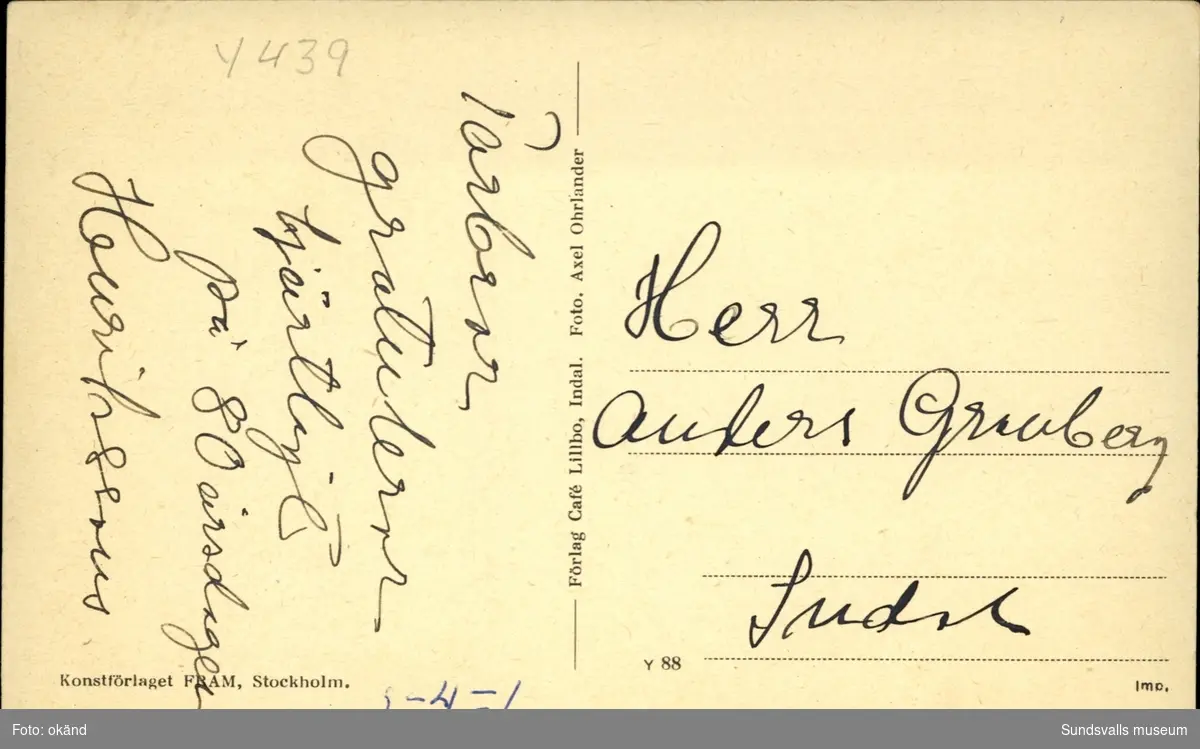 Y 439
Farbror,
gratulerar
hjärtligt
på 80 årsdagen
Henrikssons
Förlag Café Lillbo, Indal. Foto. Axel Ohrlander
Herr
Anders Grenberg
Indal
Y 88
Konstförlaget FRAM, Stockholm.
Imp.
Foto: okänd
Sundsvalls museum